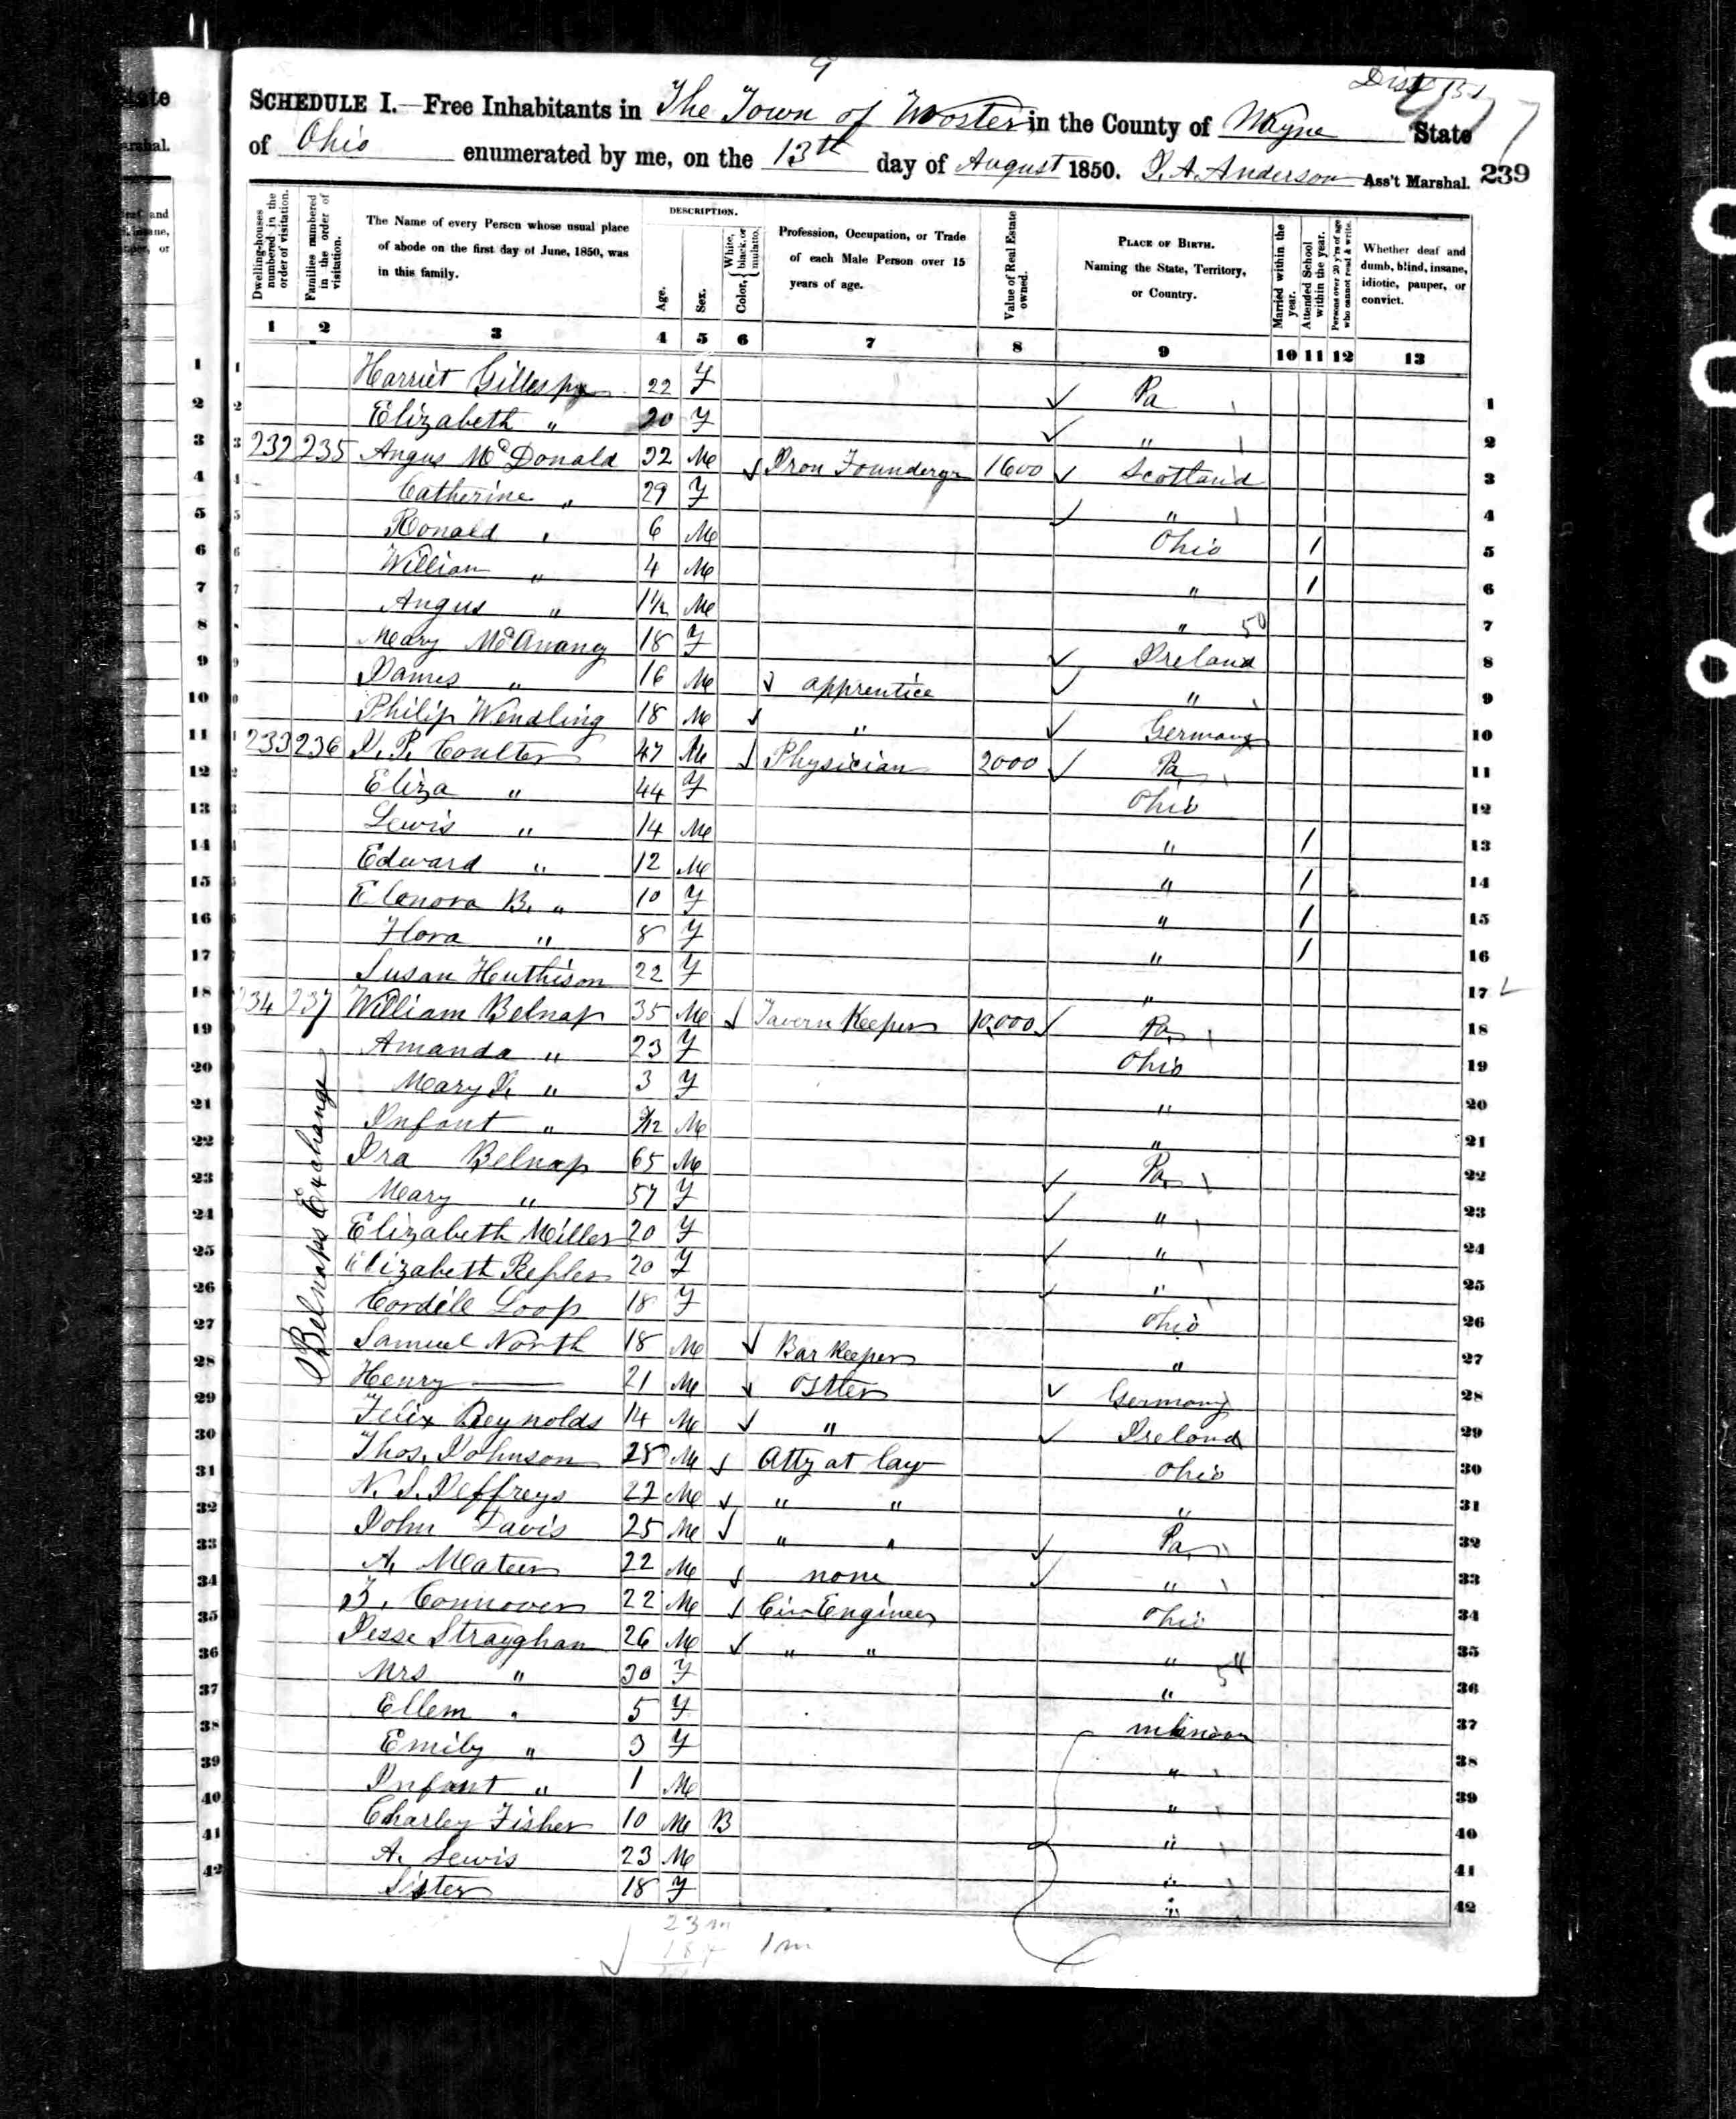 9
SCHEDULE I.—Free Inhabitants in The Town of Wooster in the County of Wayne State
of Ohio enumerated by me, on the 13th day of August 1850. J. A. Anderson Ass't Marshal. 239
DESCRIPTION.
Dwelling-houses numbered in the order of visitation. Families numbered in the order of visitation. The Name of every Person whose usual place of abode on the first day of June, 1850, was in this family. Age. Sex. Color, { White, black, or mulatto. Profession, Occupation, or Trade of each Male Person over 15 years of age. Value of Real Estate owned. PLACE OF BIRTH. Naming the State, Territory, or Country. Married within the year. Attended School within the year. Persons over 20 y'rs of age who cannot read & write. Whether deaf and dumb, blind, insane, idiotic, pauper, or convict.
1 2 3 4 5 6 7 8 9 10 11 12 13
1 Harriet Gillespy 22 F Pa 1
2 Elizabeth " 20 F " 2
3 232 235 Angus McDonald 32 M Iron Founderyr 1600 Scotland 3
4 Catherine " 29 F " 4
5 Ronald " 6 M Ohio 1 5
6 William " 4 M " 1 6
7 Angus " 1½ M " 50 7
8 Mary McAnany 18 F Ireland 8
9 James " 16 M apprentice " 9
10 Philip Wendling 18 M " Germany 10
11 233 236 J. P. Coulter 47 M Physician 2000 Pa 11
12 Eliza " 44 F Ohio 12
13 Lewis " 14 M " 1 13
14 Edward " 12 M " 1 14
15 Elenora B. " 10 F " 1 15
16 Flora " 8 F " 1 16
17 Susan Huthison 22 F " 17
18 234 237 William Belnap 35 M Tavern Keeper 10,000 Pa. 18
19 Amanda " 23 F Ohio 19
20 Mary J. " 3 F " 20
21 Infant " M " 21
22 Ira Belnap 65 M Pa. 22
23 Mary " 57 F " 23
24 Elizabeth Miller 20 F " 24
25 Elizabeth Repler 20 F " 25
26 Cordele Loop 18 F Ohio 26
27 Samuel North 18 M Bar Keeper " 27
28 Henry —— 21 M Ostler Germany 28
29 Felix Reynolds 14 M " Ireland 29
30 Thos. Johnson 28 M Atty at law Ohio 30
31 N. S. Jeffreys 22 M " " " 31
32 John Davis 25 M " " Pa. 32
33 A. Mateer 22 M none " 33
34 J. Connover 22 M Civ Engineer Ohio 34
35 Jesse Strayghan 26 M " " " 35
36 Mrs " 30 F " 36
37 Ellem " 5 F unknown 37
38 Emily " 3 F " 38
39 Infant " 1 M " 39
40 Charley Fisher 10 M B " 40
41 A. Lewis 23 M " 41
42 Sister 18 F " 42
Belnaps Exchange
23 m
1 m